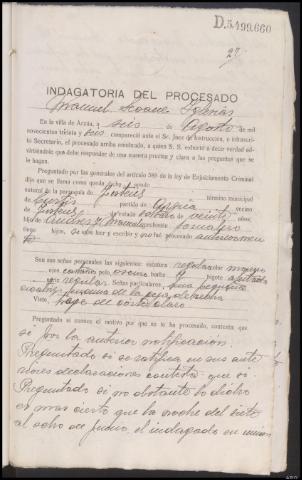 D.5.499.660
27
INDAGATORIA DEL PROCESADO
Manuel Seoane Iglesias
En la villa de Arzúa, a seis de Agosto de mil
novecientos treinta y seis compareció ante el Sr. Juez de Instrucción, e infrascrito
Secretario, el procesado arriba nombrado, a quien S. S. exhortó a decir verdad ad-
virtiéndole que debe responder de una manera precisa y clara a las preguntas que se
le hagan.
Preguntado por las generales del artículo 388 de la ley de Enjuiciamiento Criminal
dijo que se llama como queda dicho
natural de la parroquia de término municipal
de partido de Arzúa
de estado soltero de veinte años,
hijo de y Manuela jornalero
tiene hijos, sabe leer y escribir y no procesado
Son sus señas personales las siguientes: estatura regular
color pelo oscuro barba bigote afeitado
regular. Señas particulares, una pequeña
cicatriz encima de la ceja derecha
Viste, traje de color claro
Preguntado si conoce el motivo por que se le ha procesado, contesta que
si por la anterior notificacion.
Preguntado si se ratifica en sus ante
riores declaraciones contesta que si
Preguntado si no obstante lo dicho
es mas cierto que la noche del siete
al ocho de Junio, el indagado en union